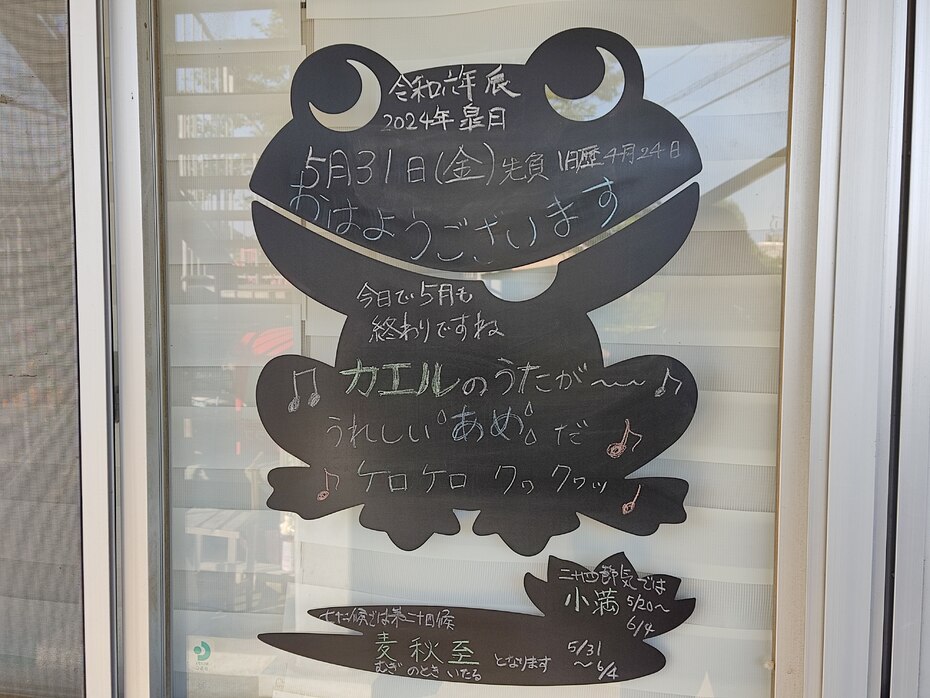 令和六年 辰
2024年 皐月
5月31日(金)先負 旧歴4月24日
おはようございます
今日で5月も
終わりですね
カエルのうたが〜〜
うれしい あめ だ
ケロケロ クヮクヮッ
二十四節気では
小満 5/20〜
6/4
七十二候では第二十四候
麦秋至
むぎ のとき いたる
となります
5/31
〜6/4